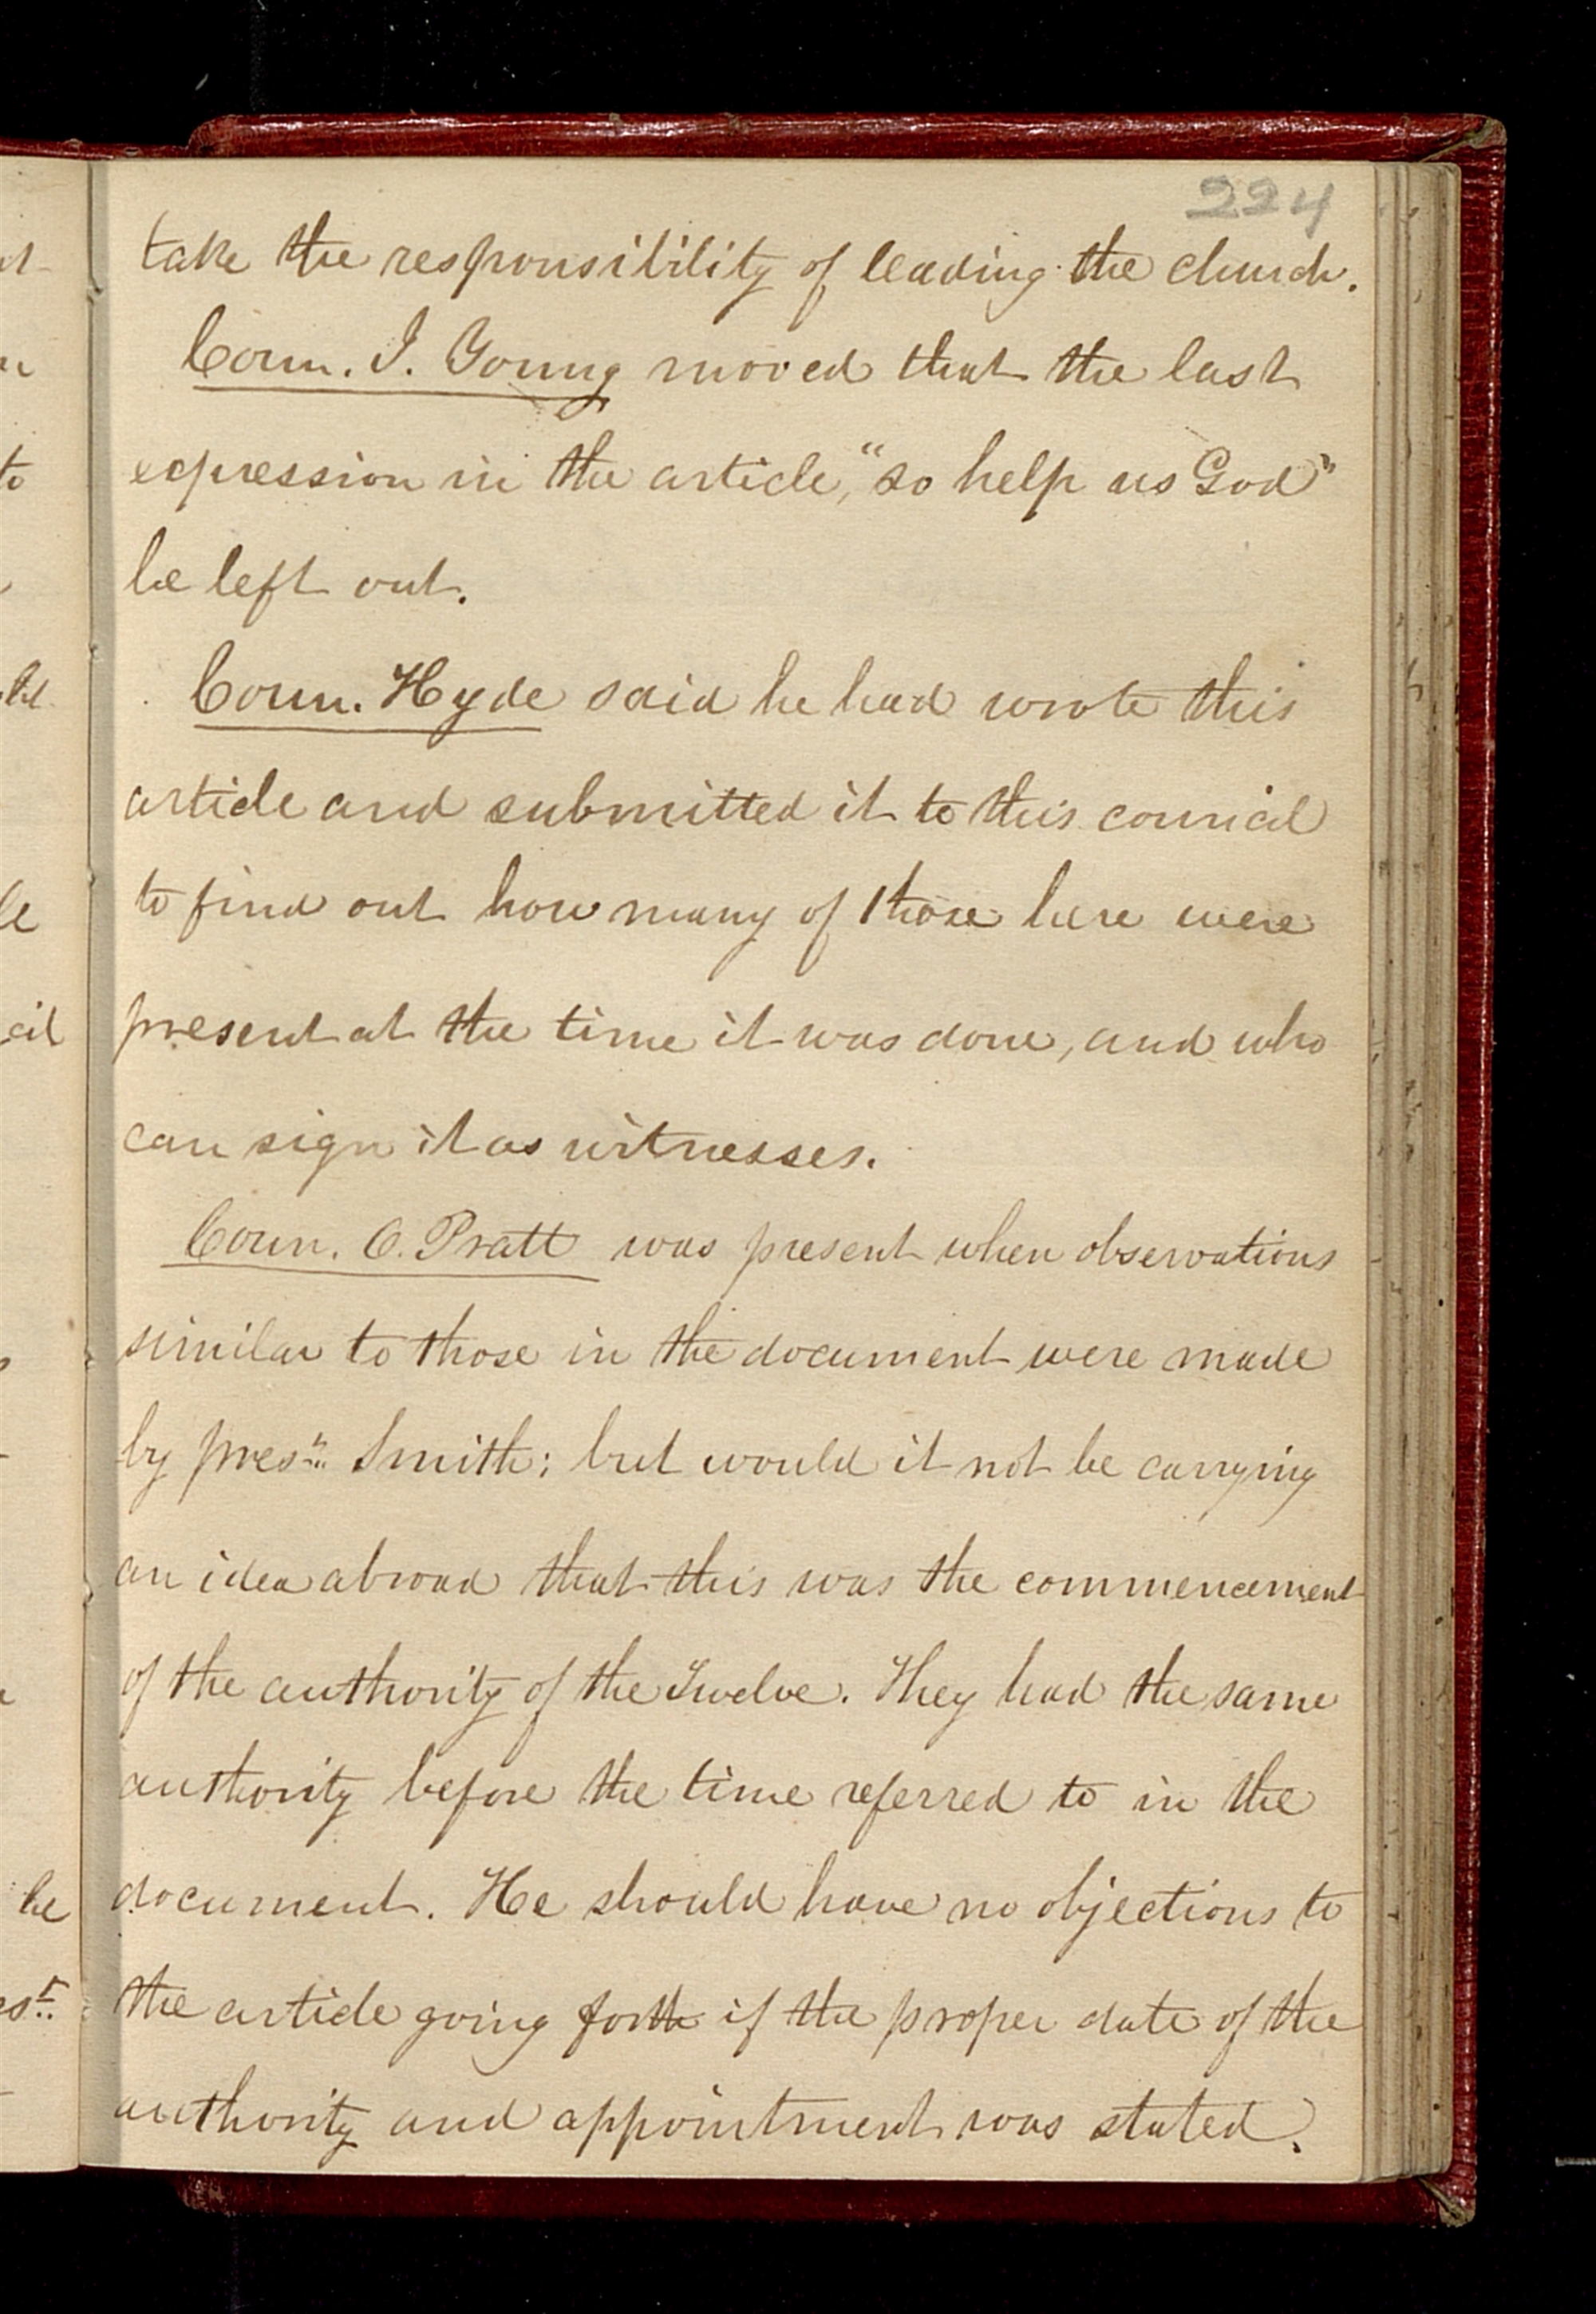 224
take the responsibility of leading the church.
Coun. J. Young moved that the last
expression in the article, "so help us God"
be left out.
Coun. Hyde said he had wrote this
article and submitted it to this council
to find out how many of those here were
present at the time it was done, and who
can sign it as witnesses.
Coun. O. Pratt was present when observations
similar to those in the document were made
by presn. Smith; but would it not be carrying
an idea abroad that this was the commencement
of the authority of the Twelve. They had the same
authority before the time referred to in the
document. He should have no objections to
the article going forth if the proper date of the
authority and appointment was stated.